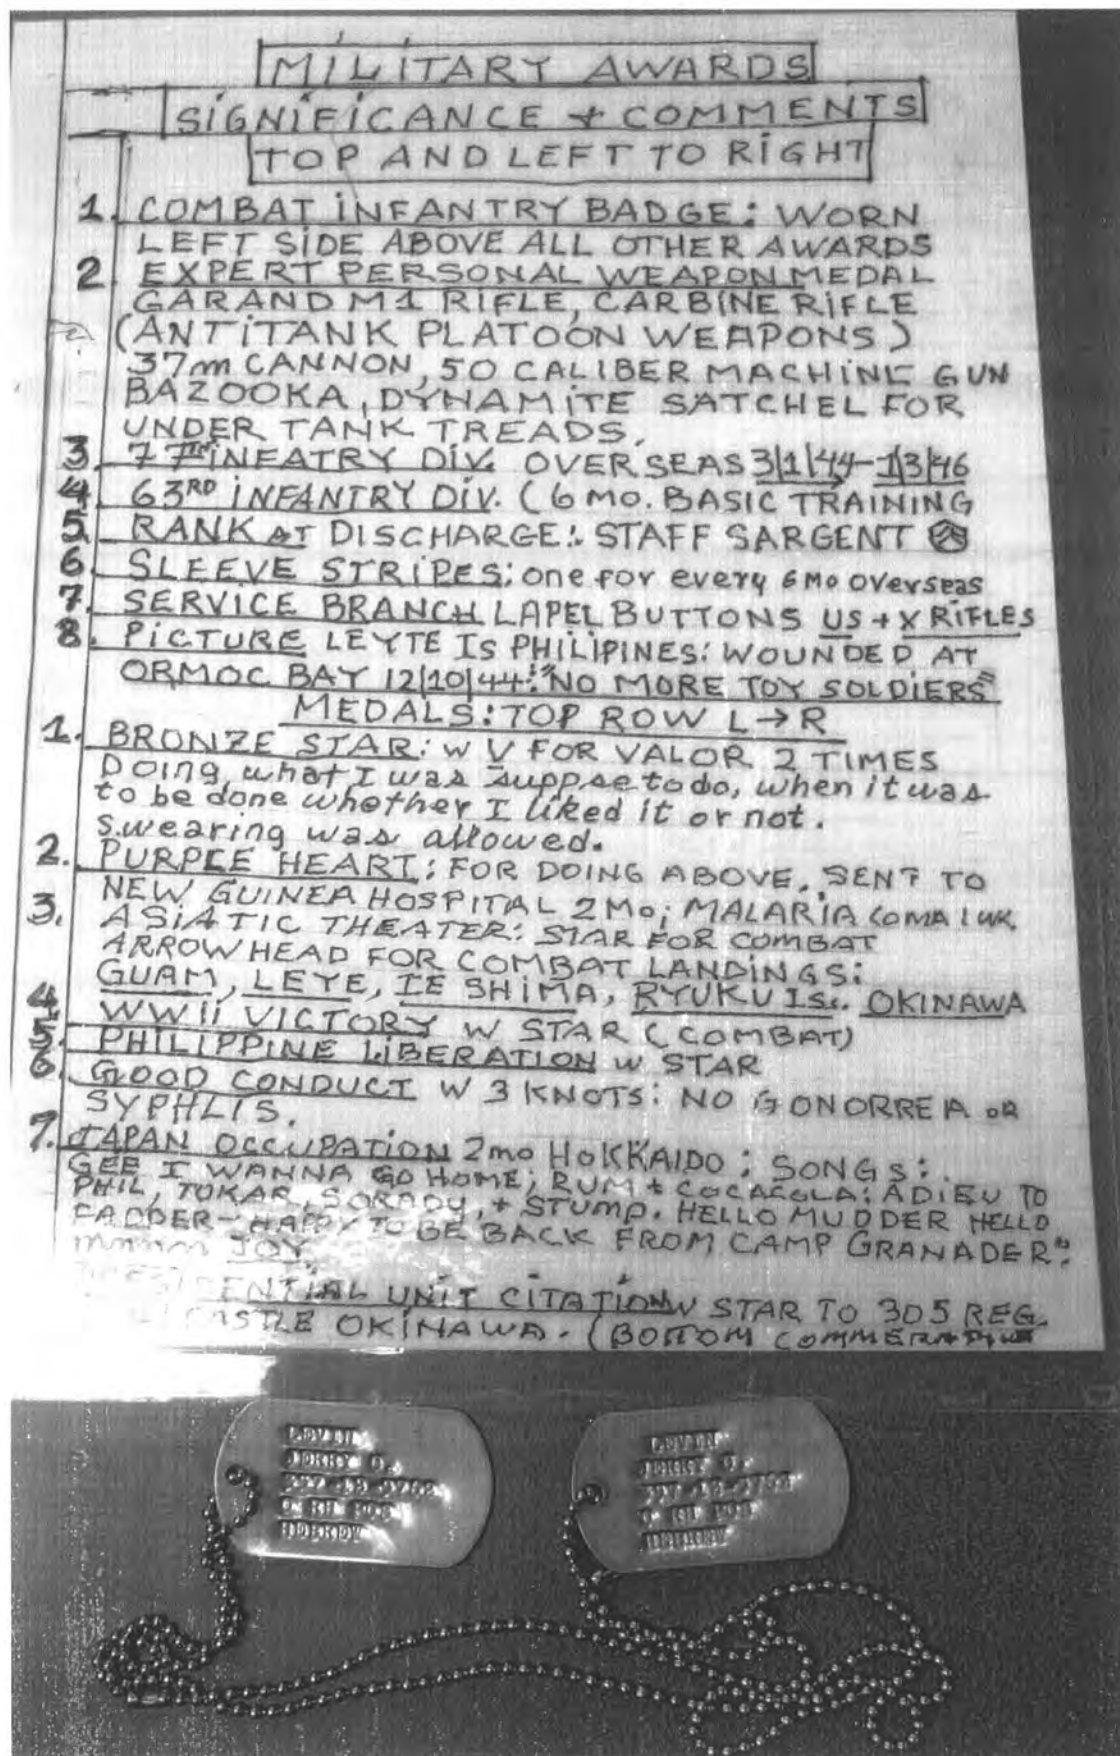 MILITARY AWARDS
SIGNIFICANCE + COMMENTS
TOP AND LEFT TO RIGHT
1. COMBAT INFANTRY BADGE: WORN
LEFT SIDE ABOVE ALL OTHER AWARDS
2 EXPERT PERSONAL WEAPON MEDAL
GARAND M1 RIFLE, CARBINE RIFLE
(ANTITANK PLATOON WEAPONS)
37m CANNON, 50 CALIBER MACHINE GUN
BAZOOKA, DYNAMITE SATCHEL FOR
UNDER TANK TREADS.
3 77TH INFATRY DIV. OVERSEAS 3|1|44-1|3|46
4. 63RD INFANTRY DIV. (6 MO. BASIC TRAINING
5. RANK AT DISCHARGE: STAFF SARGENT
6. SLEEVE STRIPES: one for every 6 Mo overseas
7. SERVICE BRANCH LAPEL BUTTONS US + X RIFLES
8. PICTURE LEYTE IS PHILIPINES: WOUNDED AT
ORMOC BAY 12|10|44: "NO MORE TOY SOLDIERS"
MEDALS: TOP ROW L→R
1. BRONZE STAR: W V FOR VALOR 2 TIMES
Doing what I was suppse to do, when it was
to be done whether I liked it or not.
Swearing was allowed.
2. PURPLE HEART: FOR DOING ABOVE, SENT TO
NEW GUINEA HOSPITAL 2 Mo; MALARIA COMA 1 WK
3. ASIATIC THEATER: STAR FOR COMBAT
ARROWHEAD FOR COMBAT LANDINGS:
GUAM, LEYE, IE SHIMA, RYUKU Is. OKINAWA
4. WWII VICTORY W STAR (COMBAT)
5. PHILIPPINE LIBERATION W STAR
6. GOOD CONDUCT W 3 KNOTS: NO GONORREA OR
SYPHLIS.
7. JAPAN OCCUPATION 2mo HOKKAIDO: SONGS:
GEE I WANNA GO HOME; RUM + COCACOLA: ADIEU TO
PHIL, TOKAR, SORADY, + STUMP. HELLO MUDDER HELLO
FADDER-HAPPY TO BE BACK FROM CAMP GRANADER"
JOY
UNIT CITATION W STAR TO 305 REG.
OKINAWA. (BOTTOM
LEVIN
JERRY O.
O RH POS
HEBREW
LEVIN
JERRY O.
O RH POS
HEBREW